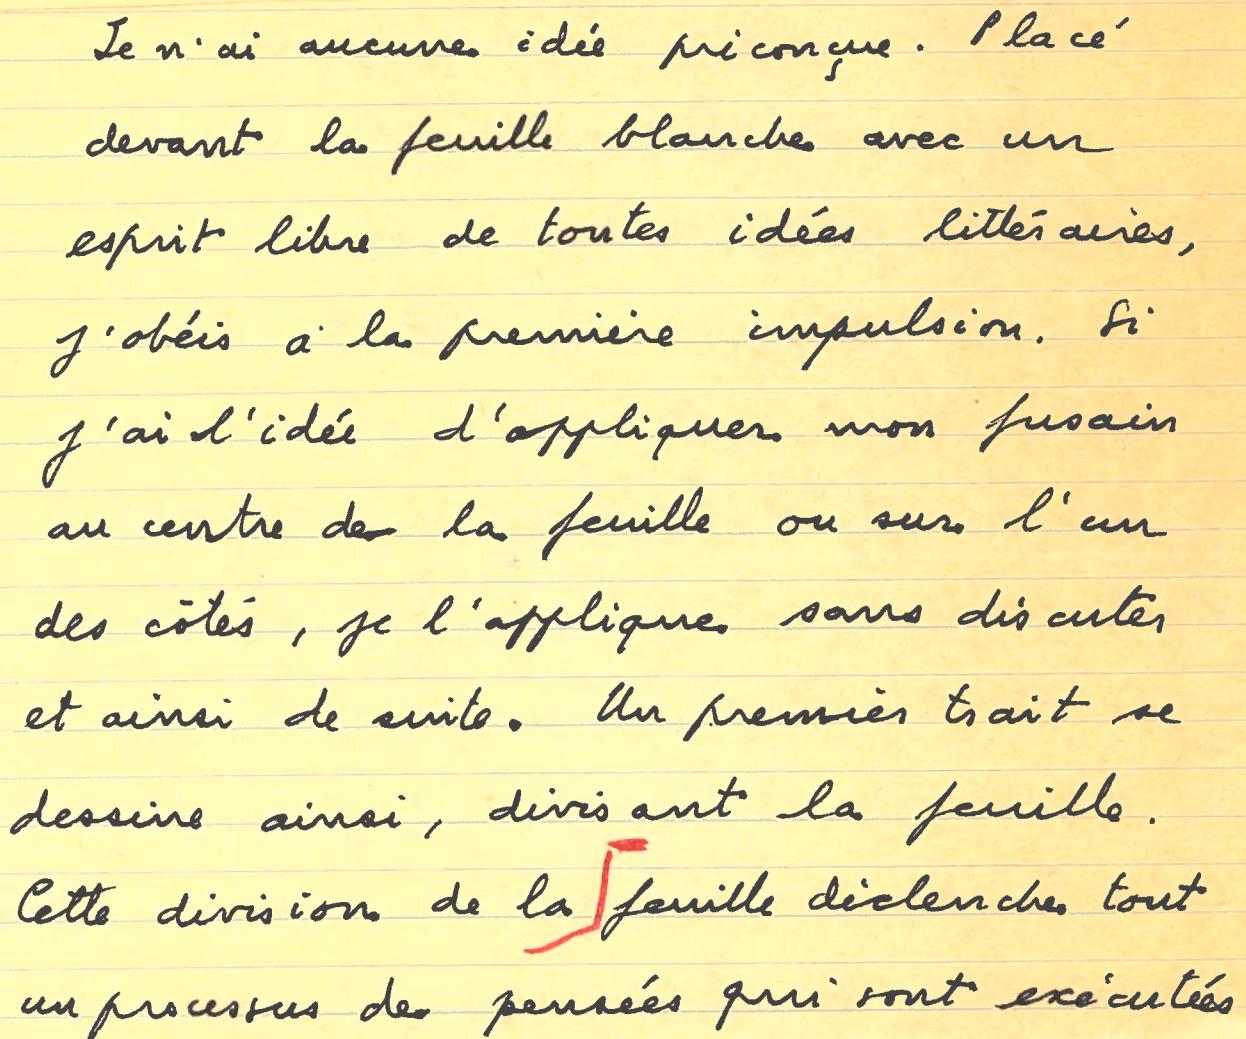 Je n'ai aucune idée préconçue. Placé
devant la feuille blanche avec un
esprit libre de toutes idées littéraires,
j'obéis à la première impulsion. Si
j'ai l'idée d'appliquer mon fusain
au centre de la feuille ou sur l'un
des côtés, je l'applique sans discuter
et ainsi de suite. Un premier trait se
dessine ainsi, divisant la feuille.
Cette division de la feuille déclenche tout
un processus de pensées qui sont exécutées